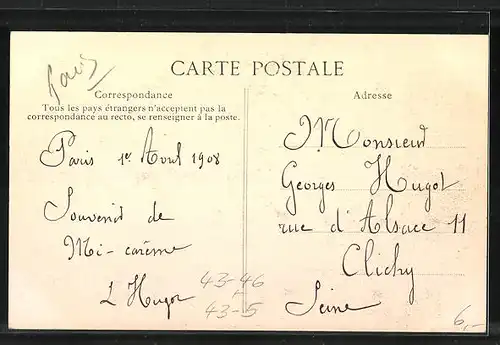 Paris
CARTE POSTALE
Correspondance
Tous les pays étrangers n'acceptent pas la
correspondance au recto, se renseigner à la poste.
Paris 1er Avril 1908
Souvenir de
Mi-carême
L Hugot
43-46
+
43-5
Adresse
Monsieur
Georges Hugot
rue d'Alsace 11
Clichy
Seine
6,-